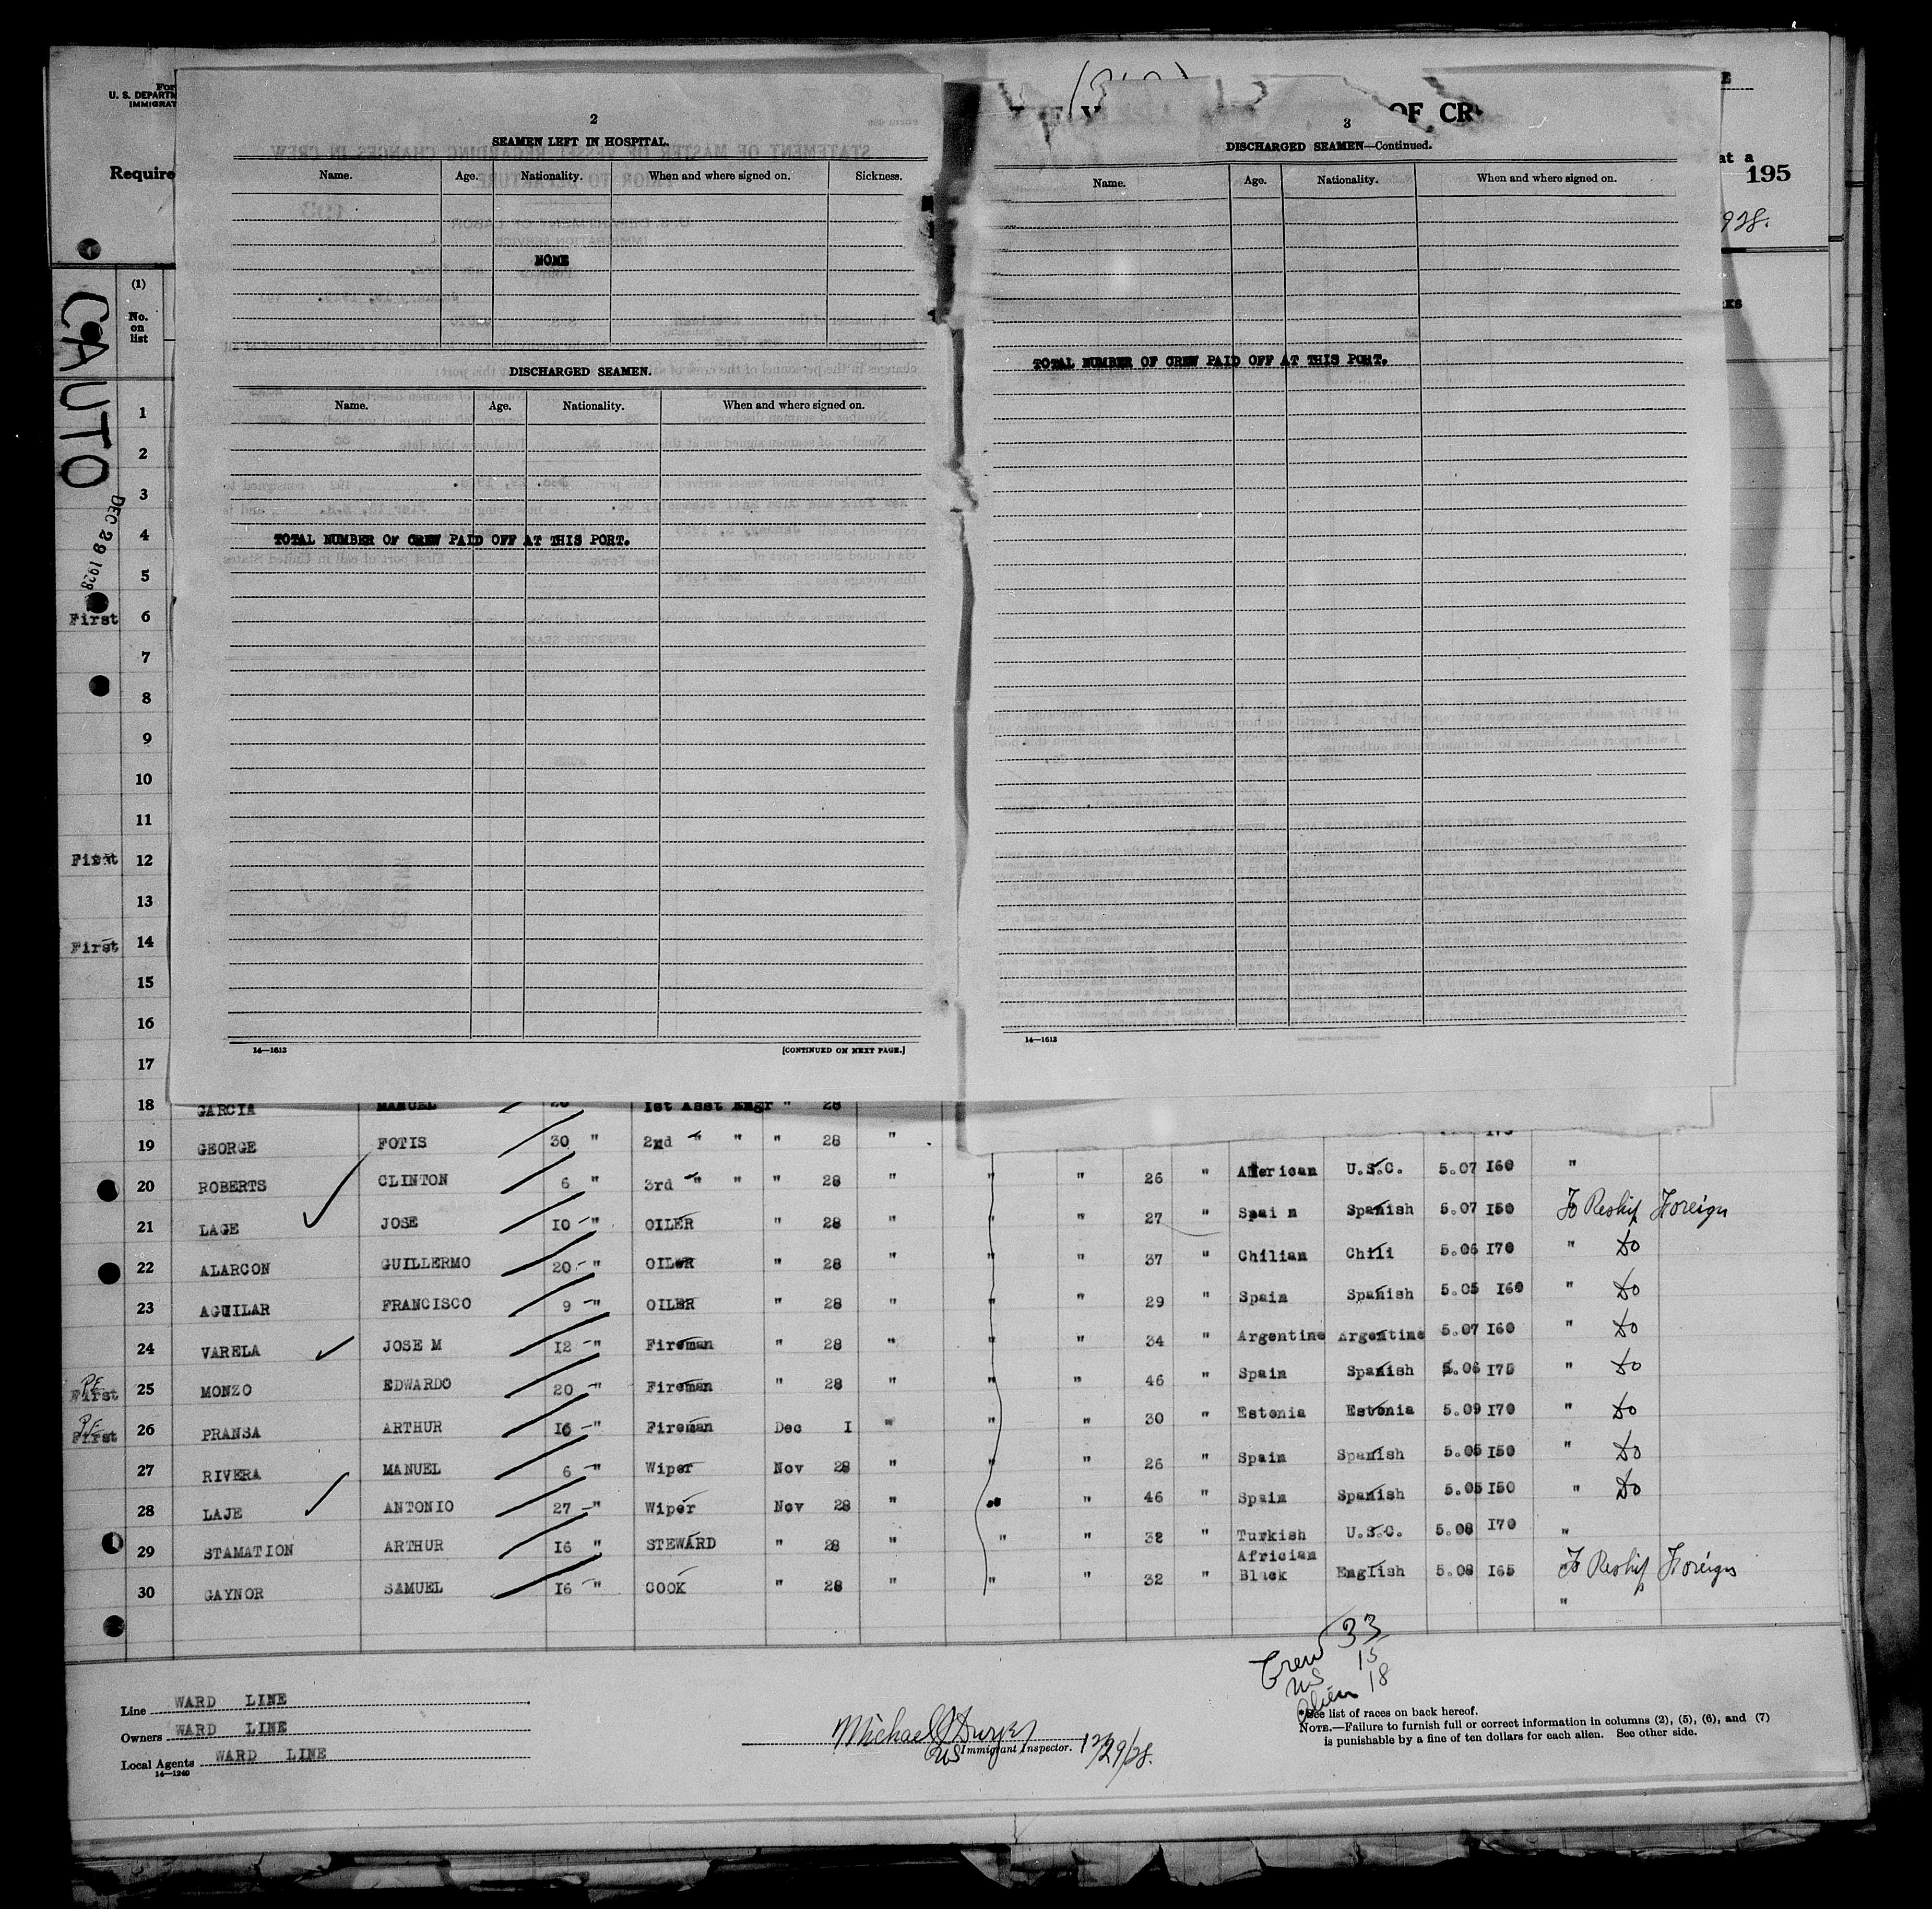 For
U. S. DEPARTM
IMMIGRAT
Require
OF CR
at a
195
928.
CAUTO
DEC 29 1928
(1)
No.
on
list
2
SEAMEN LEFT IN HOSPITAL.
Name. Age. Nationality. When and where signed on. Sickness.
NONE
DISCHARGED SEAMEN.
Name. Age. Nationality. When and where signed on.
TOTAL NUMBER OF CREW PAID OFF AT THIS PORT.
14—1613 [CONTINUED ON NEXT PAGE.]
3
DISCHARGED SEAMEN—Continued.
Name. Age. Nationality. When and where signed on.
TOTAL NUMBER OF CREW PAID OFF AT THIS PORT.
14—1613
1
2
3
4
5
First 6
7
8
9
10
11
First 12
13
First 14
15
16
17
18 GARCIA MANUEL 1st Asst Engr " 28
19 GEORGE FOTIS 30 " 2nd " " " 28 "
20 ROBERTS CLINTON 6 " 3rd " " " 28 " " " 26 " American U.S.C. 5.07 I60 "
21 LAGE JOSE I0 " OILER " 28 " " " 27 " Spain Spanish 5.07 I50 To Reship Foreign
22 ALARCON GUILLERMO 20 " OILER " 28 " " " 37 " Chilian Chili 5.06 I70 " Do
23 AGUILAR FRANCISCO 9 " OILER " 28 " " " 29 " Spain Spanish 5.05 I60 " Do
24 VARELA JOSE M I2 " Fireman " 28 " " " 34 " Argentine Argentine 5.07 I60 " Do
First 25 MONZO EDWARDO 20 " Fireman " 28 " " " 46 " Spain Spanish 5.06 I75 " Do
First 26 PRANSA ARTHUR I6 " Fireman Dec I " " " 30 " Estonia Estonia 5.09 I70 " Do
27 RIVERA MANUEL 6 " Wiper Nov 28 " " " 26 " Spain Spanish 5.05 I50 " Do
28 LAJE ANTONIO 27 " Wiper Nov 28 " " " 46 " Spain Spanish 5.05 I50 " Do
29 STAMATION ARTHUR I6 " STEWARD " 28 " " " 32 " Turkish U.S.C. 5.08 I70 "
30 GAYNOR SAMUEL I6 " COOK " 28 " " " 32 " Africian Black English 5.08 I65 To Reship Foreign
"
Crew 33
US 15
Alien 18
Line WARD LINE
Owners WARD LINE
Local Agents WARD LINE
14—1240
Michael
US Immigrant Inspector. 12/29/28.
*See list of races on back hereof.
NOTE.—Failure to furnish full or correct information in columns (2), (5), (6), and (7)
is punishable by a fine of ten dollars for each alien. See other side.